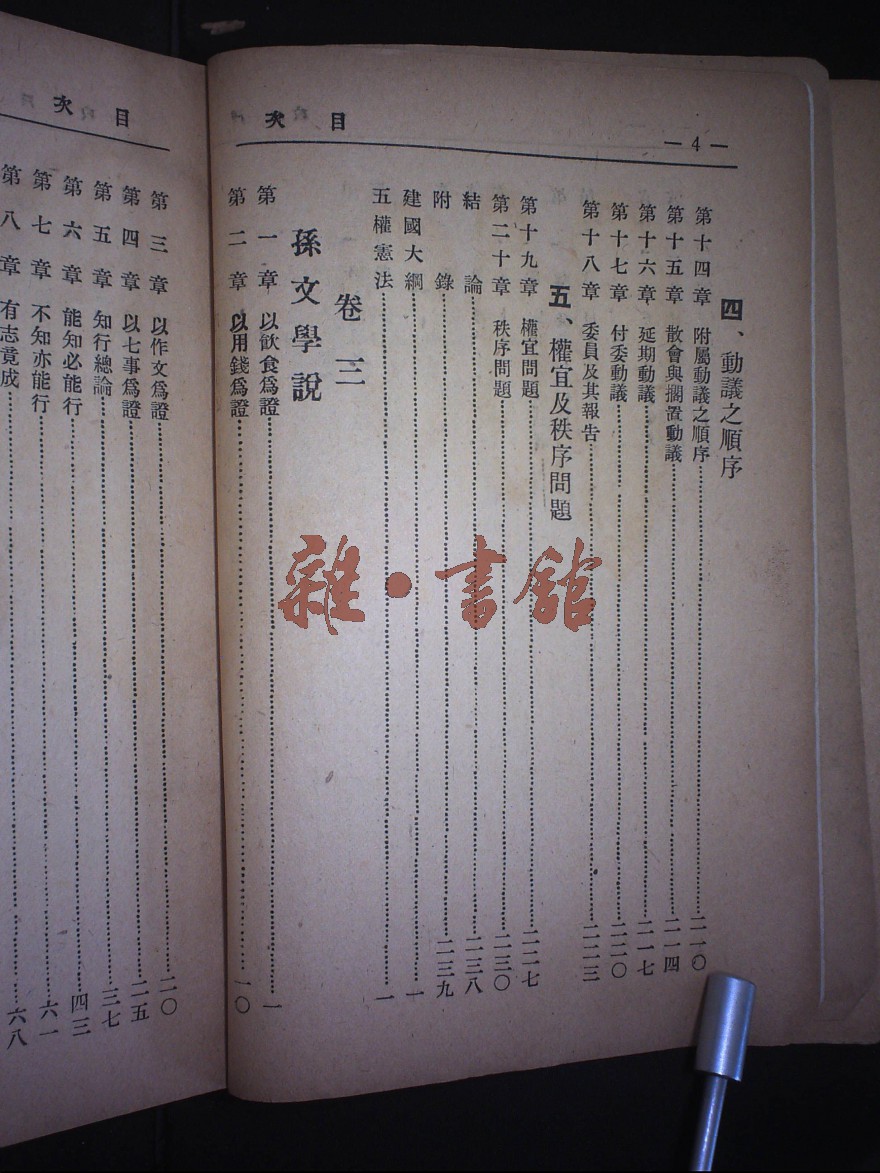 目次
— 4 —
四、動議之順序
第十四章 附屬動議之順序 二一〇
第十五章 散會與擱置動議 二一四
第十六章 延期動議 二一七
第十七章 付委動議 二二〇
第十八章 委員及其報告 二二三
五、權宜及秩序問題
第十九章 權宜問題 二二七
第二十章 秩序問題 二三〇
結論 二三八
附錄 二三九
建國大綱 一
五權憲法 一
卷三
孫文學說
第一章 以飲食爲證 一
第二章 以用錢爲證 一〇
目次
第三章 以作文爲證 二〇
第四章 以七事爲證 二五
第五章 知行總論 三七
第六章 能知必能行 四三
第七章 不知亦能行 六一
第八章 有志竟成 六八
雜·書館